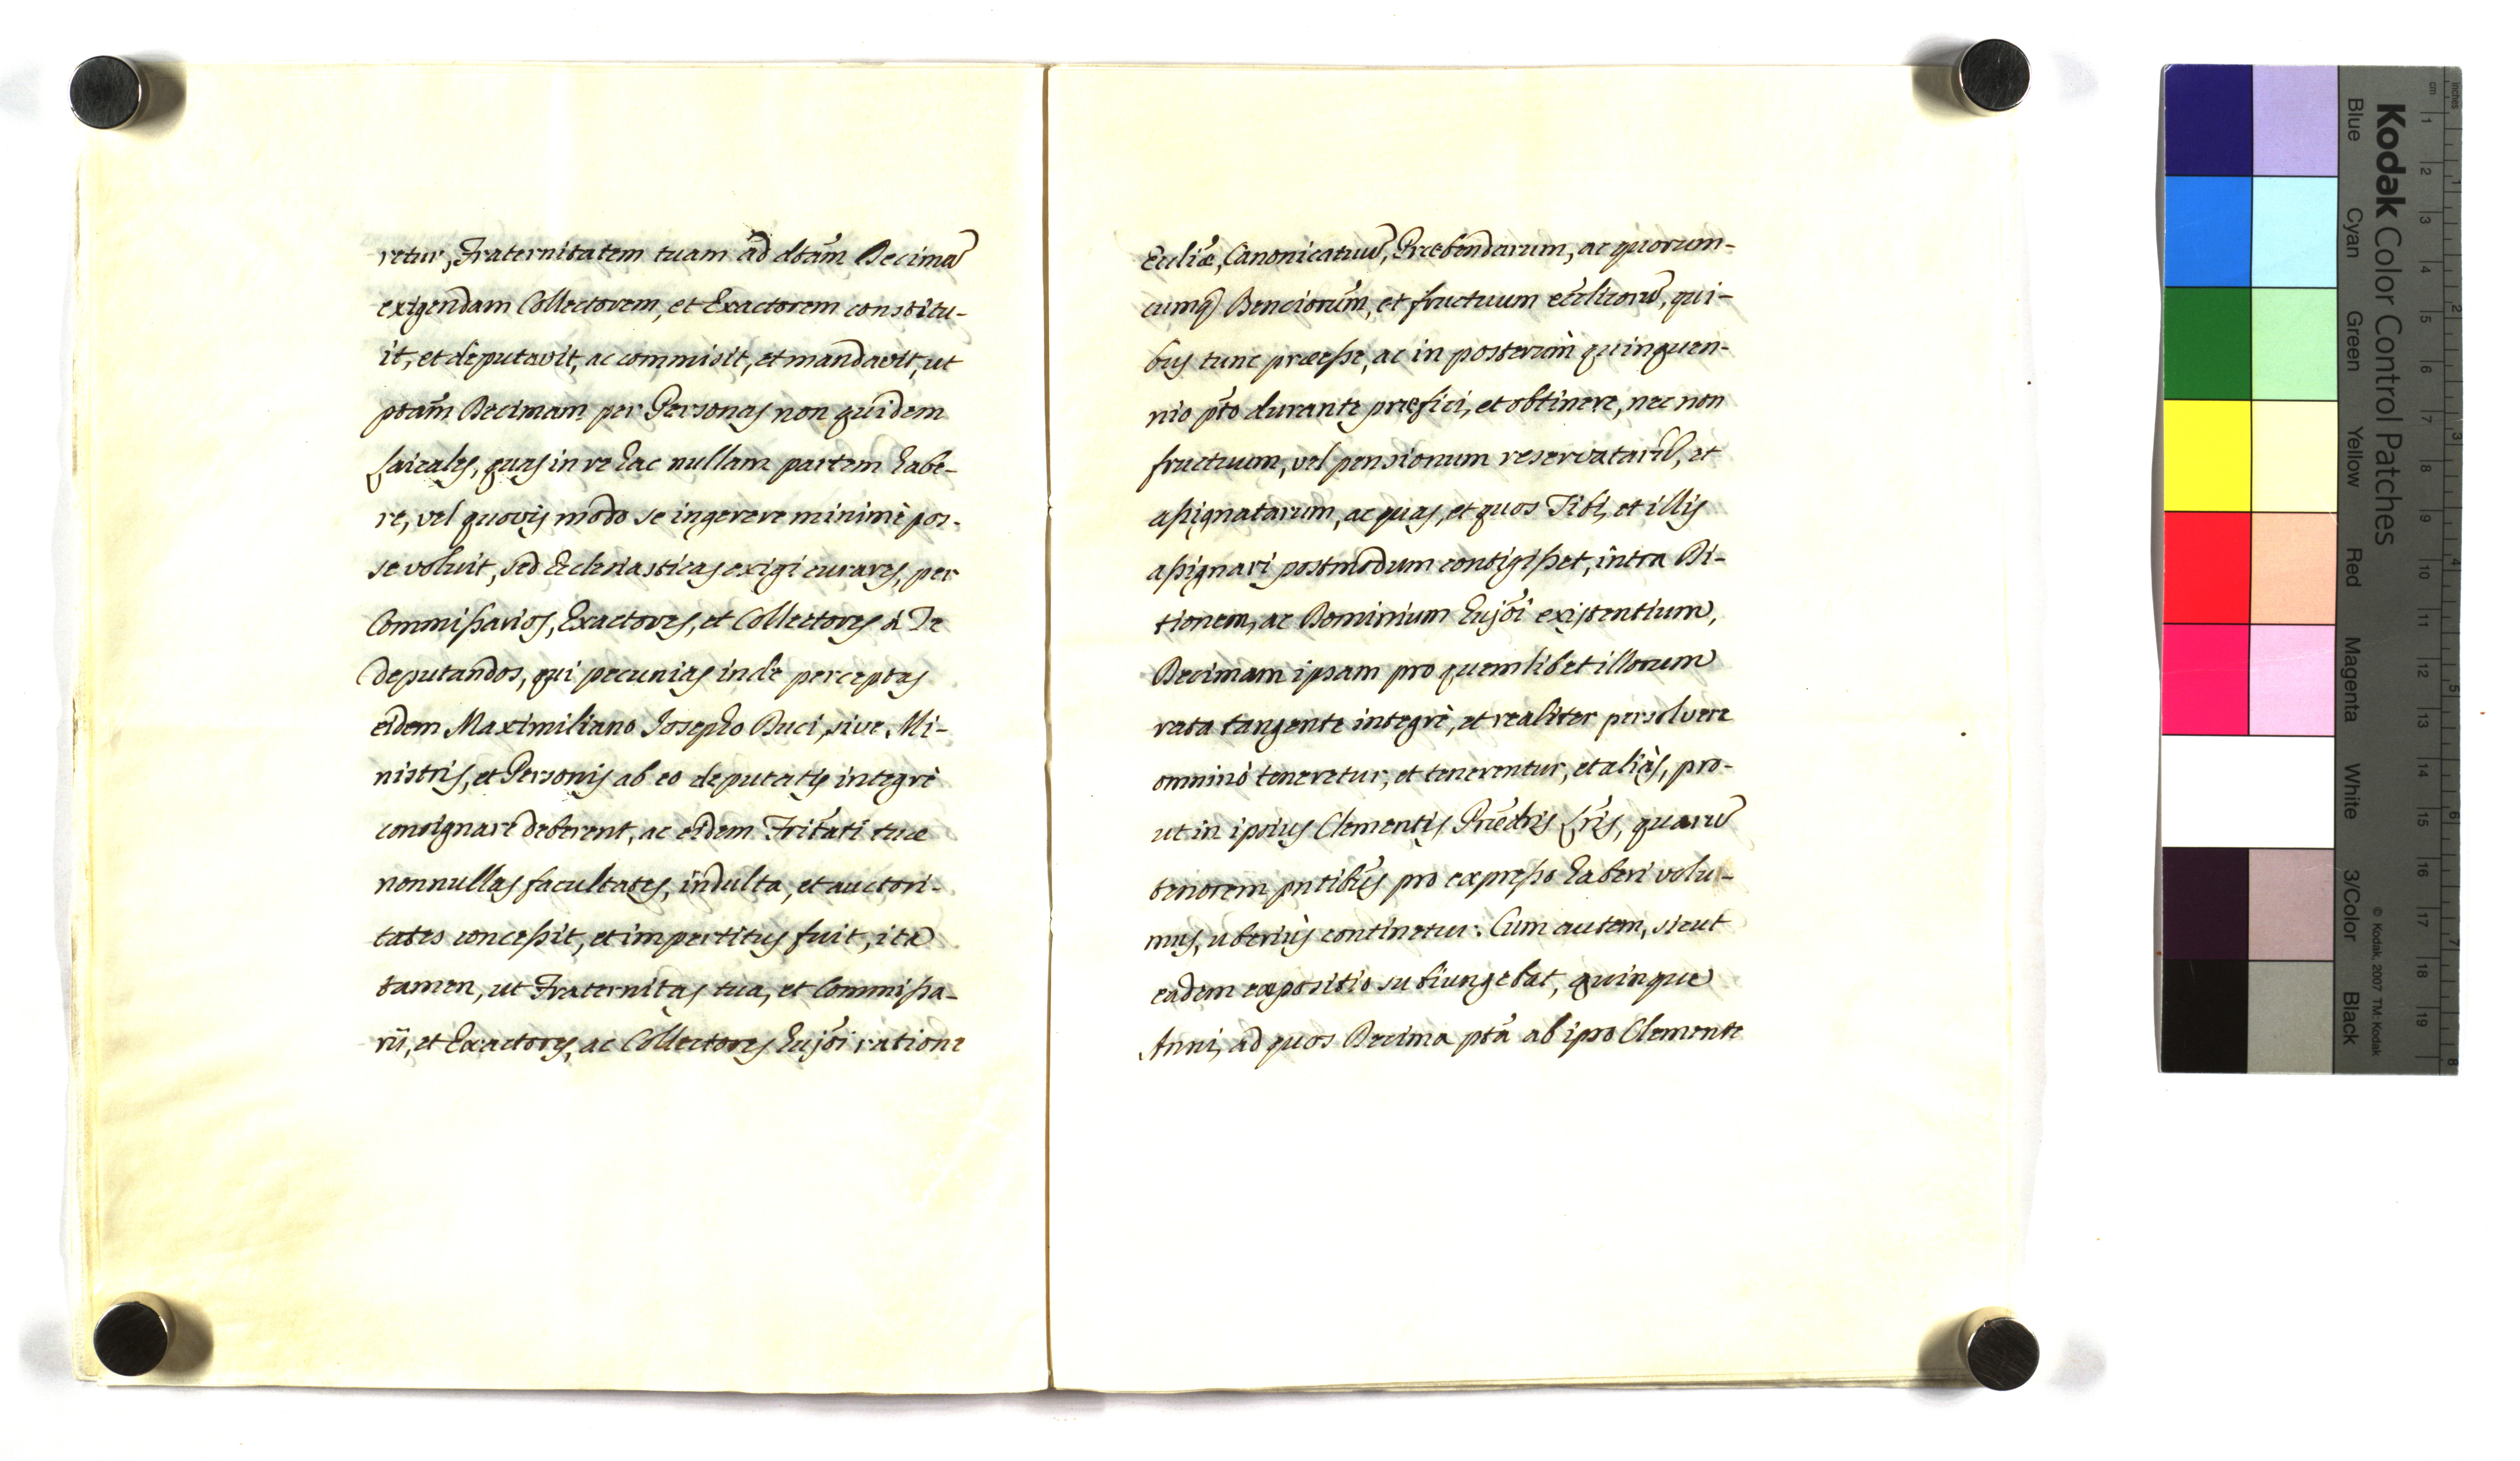 retur, Fraternitatem tuam ad dtam Decimā
exigendam Collectorem, et Exactorem constitu-
it, et deputavit, ac commisit, et mandavit, ut
ptam Decimam per Personas non quidem
Laicales, quas in re hac nullam partem habe-
re, vel quovis modo se ingerere minimè pos-
se voluit, sed Ecclesiasticas exigi curares, per
Commissarios, Exactores, et Collectores à Te
deputandos, qui pecunias inde perceptas
eidem Maximiliano Josepho Duci, sive Mi-
nistris, et Personis ab eo deputatis integrè
consignare deberent, ac eidem Fritati tuæ
nonnullas facultates, indulta, et auctori-
tates concessit, et impertitus fuit, ita
tamen, ut Fraternitas tua, et Commissa-
rii, et Exactores, ac Collectores hujōi ratione
Ecclīæ, Canonicatuū, Præbendarum, ac quorum-
cumq Benciorum, et fructuum ecclicorū, qui-
bus tunc præesse, ac in posterùm quinquen-
nio pto durante præfici, et obtinere, nec non
fructuum, vel pensionum reservatarū, et
assignatarum, ac quas, et quos Tibi, et illis
assignari postmodum contigisset, intra Di-
tionem, ac Dominium hujōi existentium,
Decimam ipsam pro quemlibet illorum
rata tangente integrè, et realiter persolvere
omninò teneretur, et tenerentur, et aliàs, pro-
ut in ipsius Clementis Prædris Lris, quarū
tenorem pntibus pro expresso haberi volu-
mus, uberiùs continetur: Cum autem, sicut
eadem expositio subiungebat, quinque
Anni, ad quos Decima pta ab ipso Clemente
Kodak Color Control Patches
Blue
Cyan
Green
Yellow
Red
Magenta
White
3/Color
Black
© Kodak, 2007 TM: Kodak
cm
1
2
3
4
5
6
7
8
9
10
11
12
13
14
15
16
17
18
19
inches
1
2
3
4
5
6
7
8